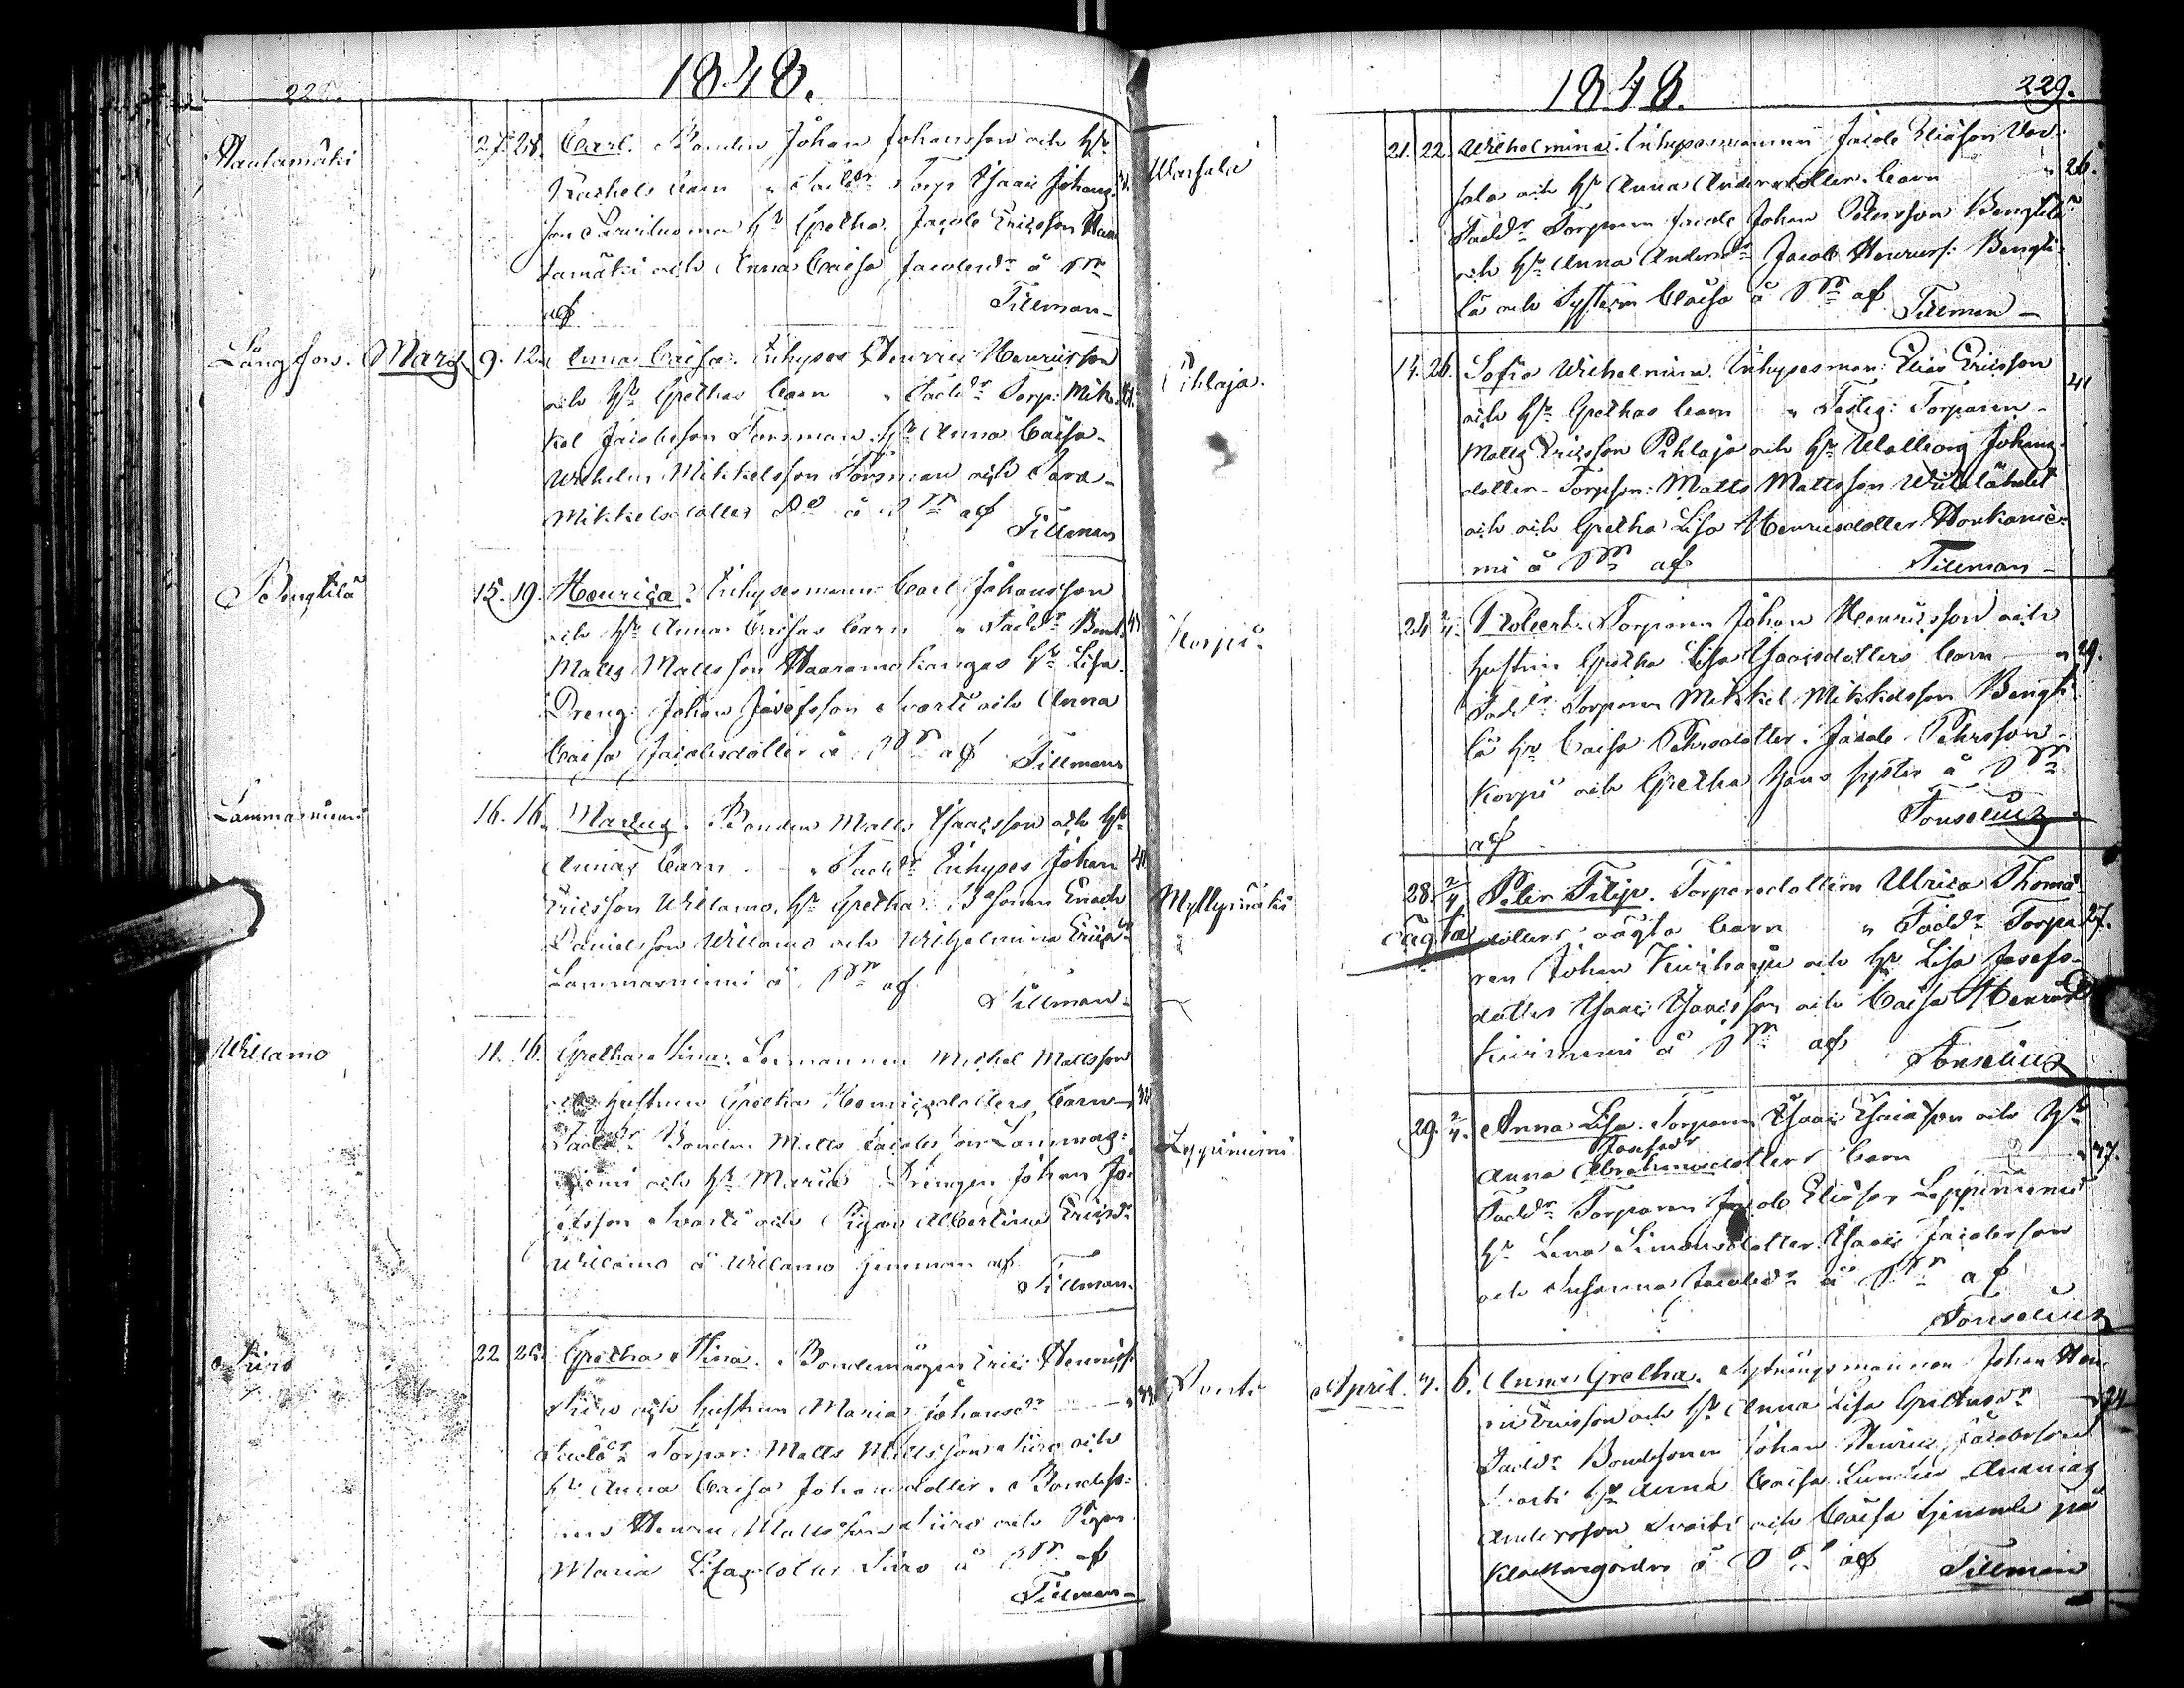 228.
1848.
Rautamäki 27. 28. Carl. Bonden Johan Johansson och h:u
Rachels barn " Fadd:r Torp: Isaac Johans-
son h:u Gretha, Jacob Ericsson Rau
tamäki och Anna Caisa Jacobsd:r å P:m
af Tillman
Långfors. Mars 9. 12. Anna Caisa. Inhyses Henric Henricsson
och h:u Grethas barn " Fadd:r Torp: Mik-
kel Jacobsson Forsman, h:u Anna Caisa
Wilhelm Mikkelsson Forsman och Sara
Mikkelsdotter D:o å P:m af
Tillman
Bengtilä 15. 19. Henrica. Inhysesmann Carl Johansson
och h:u Anna Caisas barn " Fadd:r Bond:
Matts Mattsson Haaramakangas h:u Lisa
Dreng: Johan Josefsson Svarti och Anna
Caisa Jacobsdotter å P:m af Tillman
Lammasniemi 16. 16. Marcus. Bonden Matts Isacsson och h:u
Annas barn " Fadd:r Inhyses Johan
Ericsson Willamo, h:u Gretha, B:sonen Enoch
Danielsson Willamo och Wilhelmina Ericsd:r
Lammasniemi å P:m af
Tillman
Willamo 11. 16. Gretha Stina. Michel Mattsson
och hustrun Gretha Henricsdotters barn
Fadd:r Bonden Matts Jacobsson Lammas-
niemi och h:u Maria Drengen Johan Jo-
sefsson Svarti och Pigan Albertina Ericsd:r
Willamo å Willamo hemman af
Tillman
Siiro 22. 26. Gretha Stina. Bondemågen Eric Henricss:
Siiro och hustrun Maria Johansd:r
Fadd:r Torpar: Matts Mattsson Siiro och
h:u Anna Caisa Johansdotter. Bondeso-
nen Henric Mattsson Siiro och Pigan
Maria Lisasdotter Siiro å P:m af
Tillman
1848.
229.
Warsala 21. 22. Wilhelmina. Inhysesmannen Jacob Eliasson War-
sala och h:u Anna Andersdotters barn " 26.
Fadd:r Torparen Jacob Johan Petersson Bengtilä
och h:u Anna Andersd:r Jacob Henricss: Bengti-
lä och Systern Caisa å P:m af Tillman
Pihlaja. 14. 26. Sofia Wilhelmina. Inhysesman: Elias Ericsson
och h:u Grethas barn " Testes: Torparen 41
Matts Ericsson Pihlaja och h:u Walborg Johans-
dotter Torpson: Matts Mattsson Wiitalähdet
och och Gretha Lisa Henricsdotter Honkanie-
mi å P:m af Tillman
Korpi. 24. 2/4. Robert. Torparen Johan Henricsson och
hustrun Gretha Lisa Isacsdotters barn " 29.
Fadd:r Torparen Mikkel Mikkelsson Bengti-
lä h:u Caisa Pehrsdotter. Jacob Pehrsson
Korpi och Gretha hans syster å P:m
af Tonselius
Myllymäki 28. 2/4. Peter Filip. Torparedottren Ulrica Thomæ
oägta dotters oägta barn " Fadd:r Torpa- 27.
ren Johan Kuirharju och h:u Lisa Josefs-
dotter Isaac Isacsson och Caisa Henricsd:r
Kuiriniemi å P:m af Tonselius
Leppiniemi 29. 2/4. Anna Lisa. Torparen Isaac Isacsson och h:u
Josefsd:r
Anna Abrahamsdotters barn " 37.
Fadd:r Torparen Jacob Eliasson Leppiniemi
h:u Lena Simonsdotter. Isaac Jacobsson
och Susanna Jacobsd:r å P:m af
Tonselius
April. 4. 6. Anna Gretha. Sytningsmannen Johan Hen-
ric Ericsson och h:u Anna Lisa Grethasd:r " 24
Fadd:r Bondesonen Johan Henric Jacobsson
Svarti h:u Anna Caisa Lunden Ananias
Andersson Svarti och Caisa tjenande på
Klockargården å P:m af Tillman